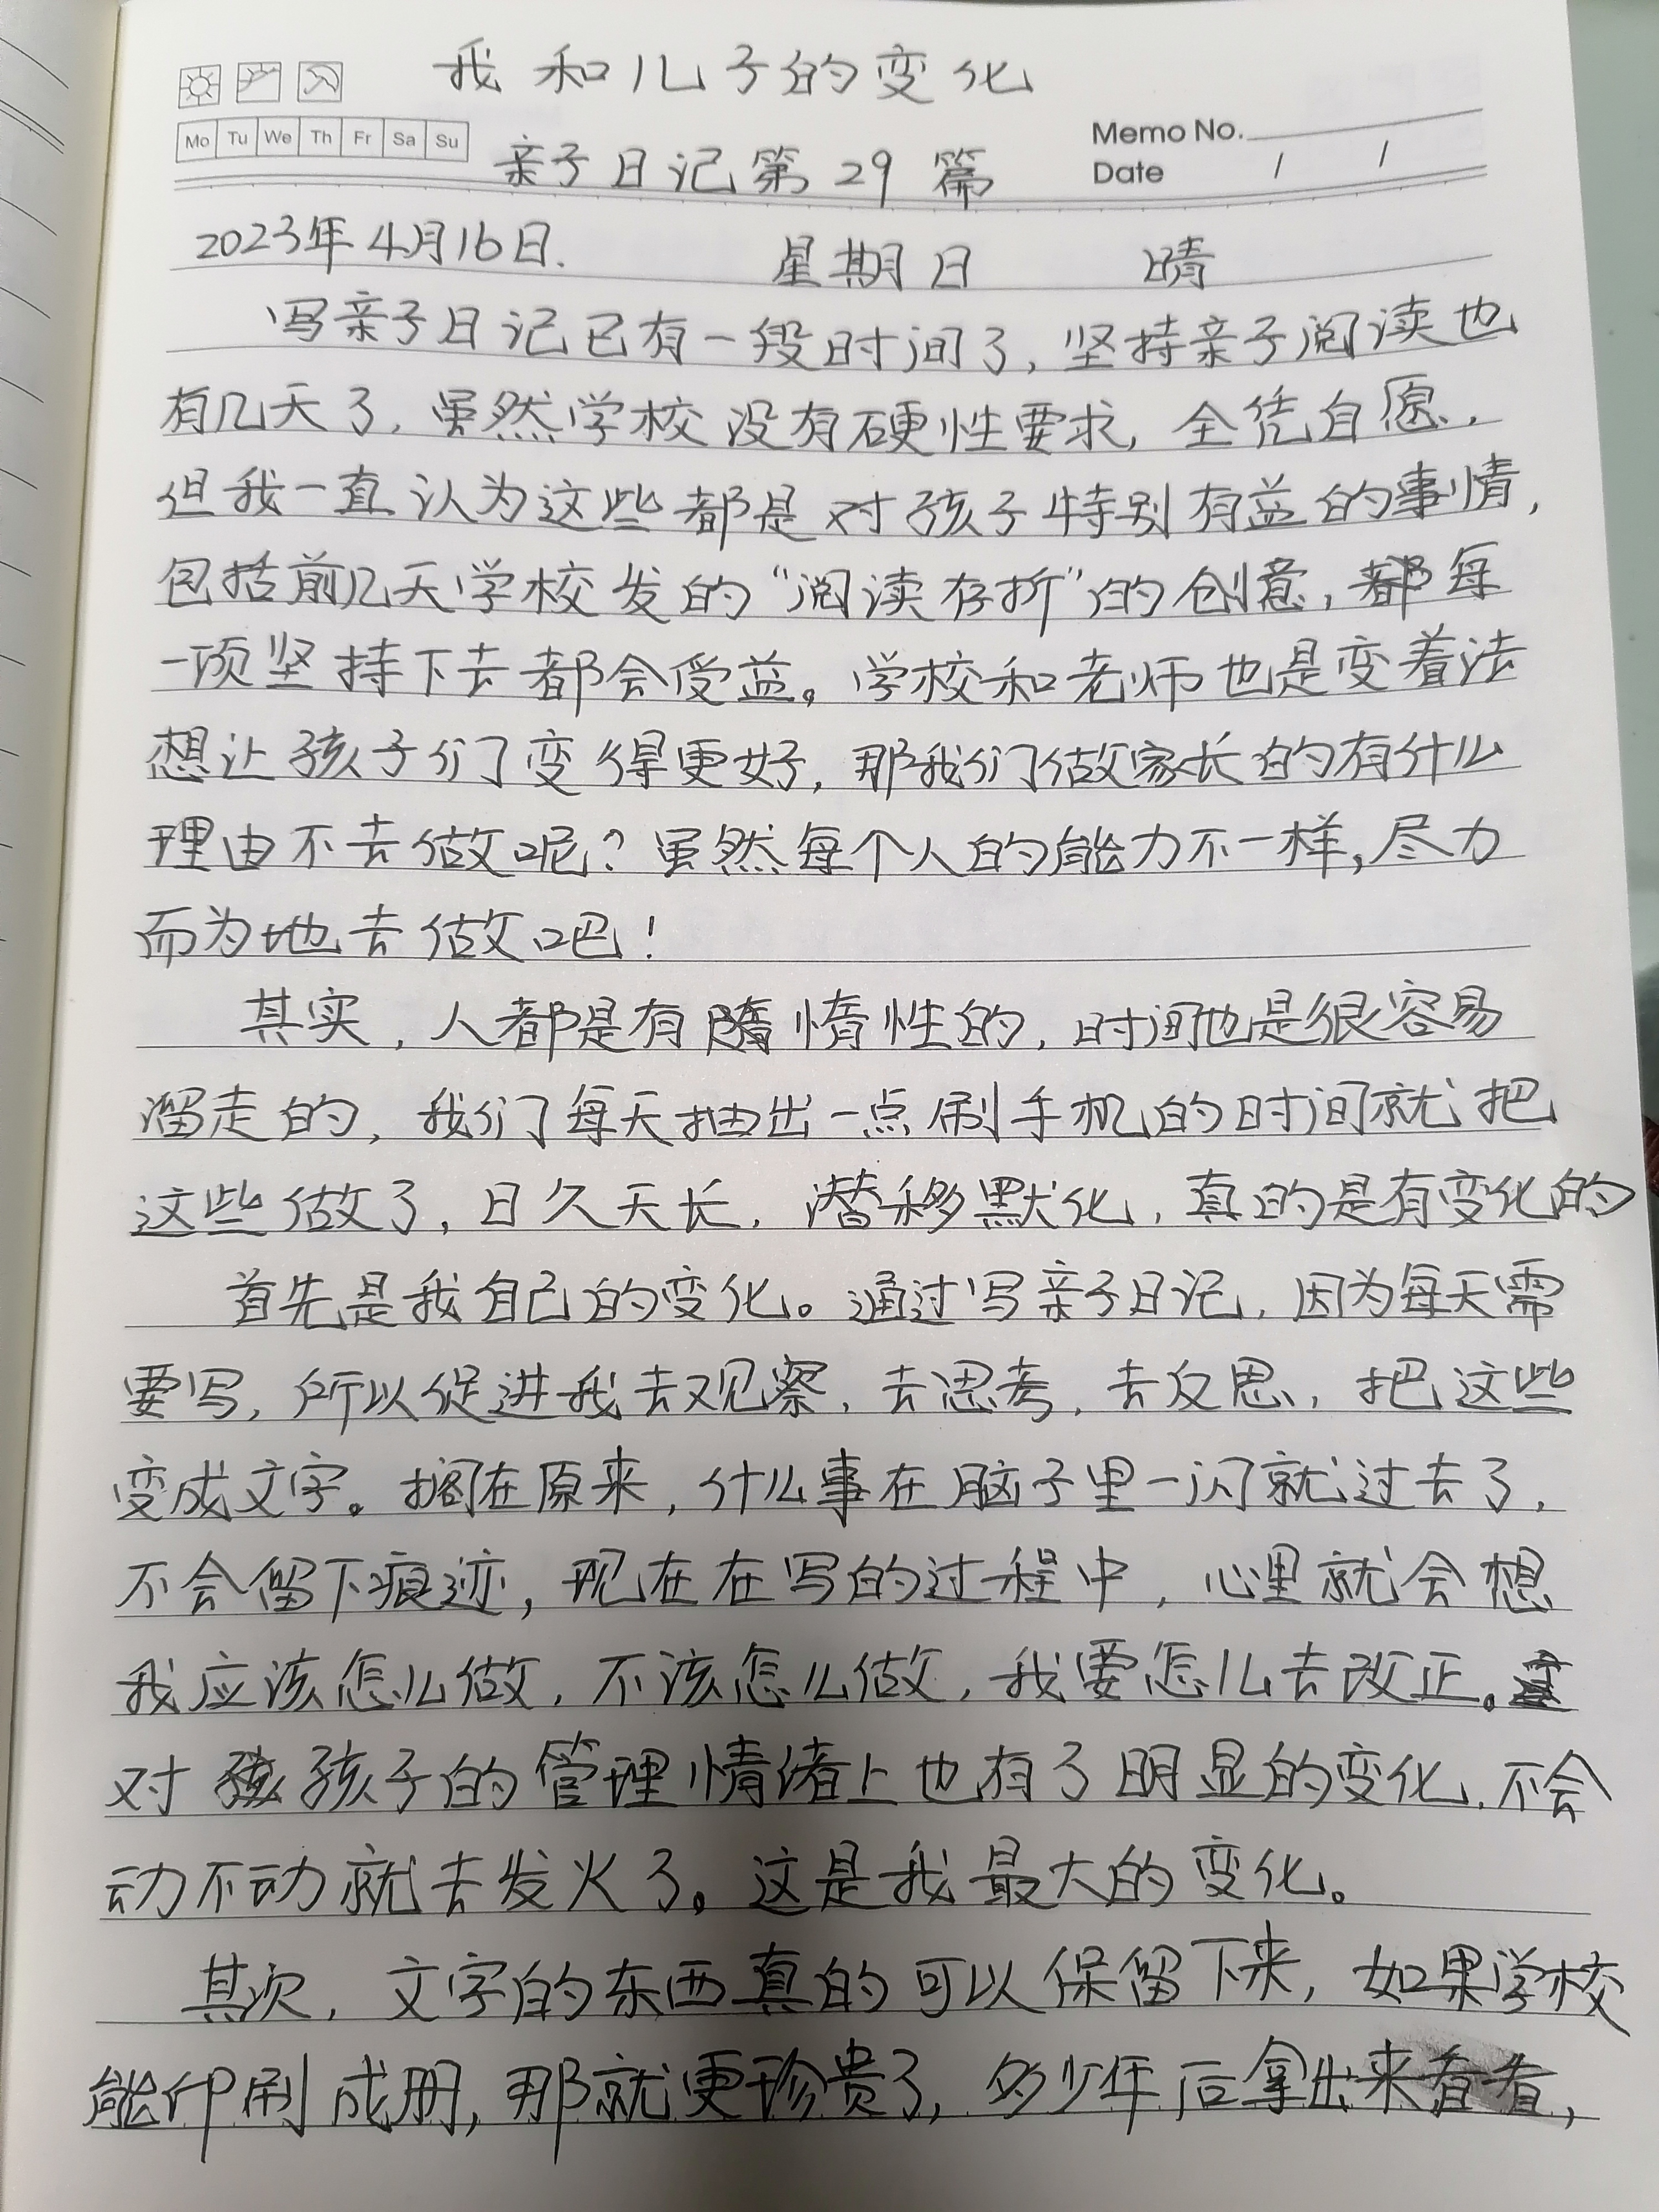 我和儿子的变化
Mo Tu We Th Fr Sa Su
Memo No.
亲子日记第29篇
Date / /
2023年4月16日. 星期日 晴
写亲子日记已有一段时间了,坚持亲子阅读也
有几天了,虽然学校没有硬性要求,全凭自愿,
但我一直认为这些都是对孩子特别有益的事情,
包括前几天学校发的“阅读存折”的创意,都每
一项坚持下去都会受益。学校和老师也是变着法
想让孩子们变得更好,那我们做家长的有什么
理由不去做呢?虽然每个人的能力不一样,尽力
而为地去做吧!
其实,人都是有惰性的,时间也是很容易
溜走的,我们每天抽出一点刷手机的时间就把
这些做了,日久天长,潜移默化,真的是有变化的
首先是我自己的变化。通过写亲子日记,因为每天需
要写,所以促进我去观察,去思考,去反思,把这些
变成文字。搁在原来,什么事在脑子里一闪就过去了,
不会留下痕迹,现在在写的过程中,心里就会想
我应该怎么做,不该怎么做,我要怎么去改正。
对孩子的管理情绪上也有了明显的变化,不会
动不动就去发火了。这是我最大的变化。
其次,文字的东西真的可以保留下来,如果学校
能印刷成册,那就更珍贵了,多少年后拿出来看看,